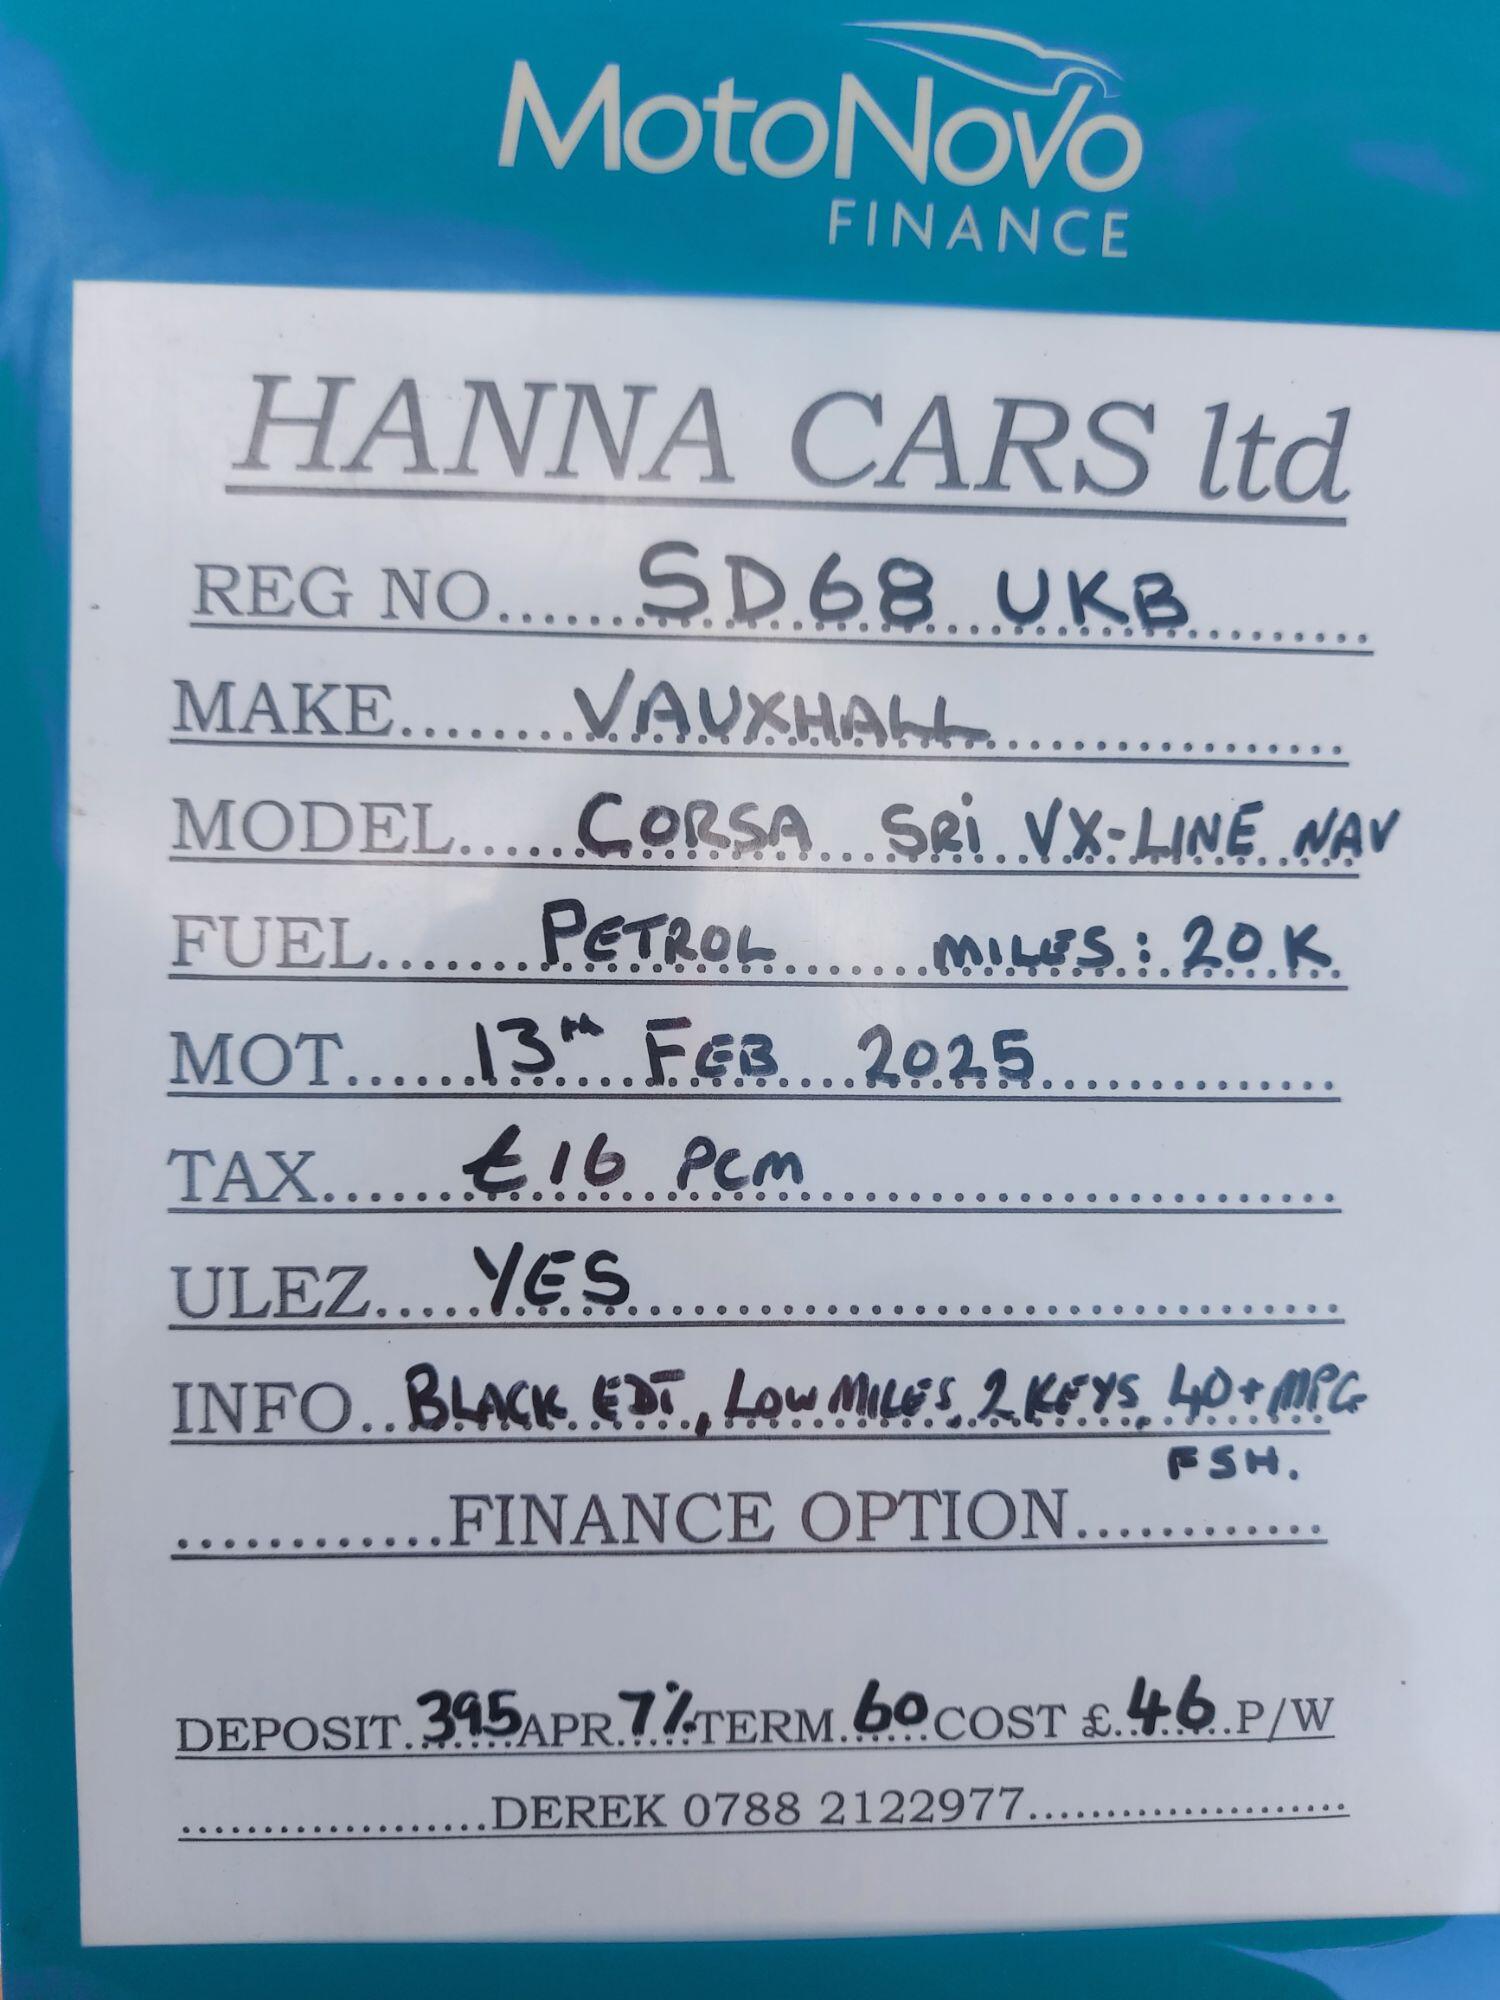 MotoNovo
FINANCE
HANNA CARS ltd
REG NO.......SD68 UKB..........
MAKE........VAUXHALL..................
MODEL......CORSA SRi VX-LINE NAV
FUEL.......PETROL MILES: 20K
MOT......13TH FEB 2025................
TAX.......£16 PCM..............................
ULEZ.....YES........................................
INFO..BLACK EDT, LOW MILES, 2 KEYS, 40+MPG
FSH.
............FINANCE OPTION............
DEPOSIT.395 APR.7% TERM.60 COST £.46..P/W
....................DEREK 0788 2122977.....................